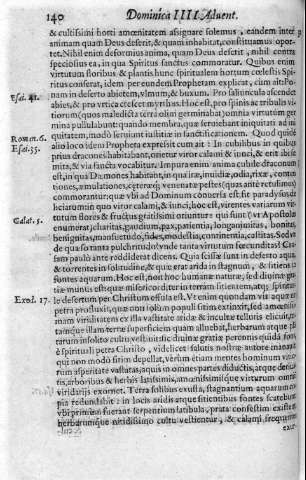 140 Dominica IIII Advent.
& cultissimi horti amœnitatem assignare solemus, eandem inter
animam quam Deus deserit, & quam inhabitat, constituamus opor-
tet. Nihil enim deformius anima, quam Deus deserit, nihil contra
speciosius ea, in qua Spiritus sanctus commoratur. Quibus enim
virtutum floribus & plantis hunc spiritualem hortum cœlestis Spi-
ritus conserat, idem per eundem Prophetam explicat, cùm ait: Po-
Esai. 41.
nam in deserto abietem, vlmum, & buxum. Pro saliuncula ascendet
abies, & pro vrtica crescet myrthus. Hoc est, pro spinis ac tribulis vi-
tiorum (quos maledicta terra olim germinabat) omnia virtutum ger-
mina pullulabunt: quando membra, quæ seruiebant iniquitati ad ini-
Roman. 6.
quitatem, modò seruiunt iustitiæ in sanctificationem. Quod quidem
Esai. 35.
alio loco idem Propheta expressit cum ait: In cubilibus in quibus
prius dracones habitabant, orietur viror calami & iunci, & erit ibi se-
mita, & via sancta vocabitur. Impura enim anima cubile draconum
est, in qua Dæmones habitant, in qua iræ, inuidiæ, odia, rixæ, conten-
tiones, æmulationes, ceteræq; venenatæ pestes (quas antè retulimus)
commorantur: quæ vbi ad Dominum conuersa est, fit paradysus de-
liciarum in quo viror calami, & iunci, hoc est, virentes variarum vir-
tutum flores & fructus gratissimi oriuntur: qui sunt (vt Apostolus
Galat. 5.
enumerat) charitas, gaudium, pax, patientia, longanimitas, bonitas,
benignitas, mansuetudo, fides, modestia, continentia, castitas. Sed vn-
de quæso tanta pulchritudo? vnde tanta virtutum fœcunditas? Cau-
sam paulò ante reddiderat dicens. Quia scissæ sunt in deserto aquæ,
& torrentes in solitudine, & quæ erat arida in stagnum, & sitiens in
fontes aquarum. Hoc est, non hoc humanæ naturæ, sed diuinæ gra-
tiæ munus est: quæ misericorditer in terram sitientem, atque
Exod. 17.
le desertum per Christum effusa est. Vt enim quondam vis aquæ ex
petra profluxit, quæ non solùm populi sitim extinxit, sed
nam viriditatem ex illa vastitate aridæ & incultæ telluris elicuit,
tamque illam terræ superficiem quam alluebat, herbarum atque
tarum insolito cultu vestiuit: sic diuinæ gratiæ perennis quidam fons
è spirituali petra Christo, videlicet salutis nostræ autore manauit,
qui non modò sitim depellat, verùm etiam mentes hominum vitio-
rum asperitate vastitas, aqua in omnes partes diducta, atque
tis, arboribus & herbis lætissimis, amœnissimisque virtutum
viridarijs exornet. Tetra solibus exusta, stagnantium aquarum co-
pia redundabit: in locis aridis atque sitientibus fontes scatebunt,
vbi primùm fuerant serpentium latibula, prata consestim existent,
herbarumque nitidissimo cultu vestientur, & calami, frequentes
exur-